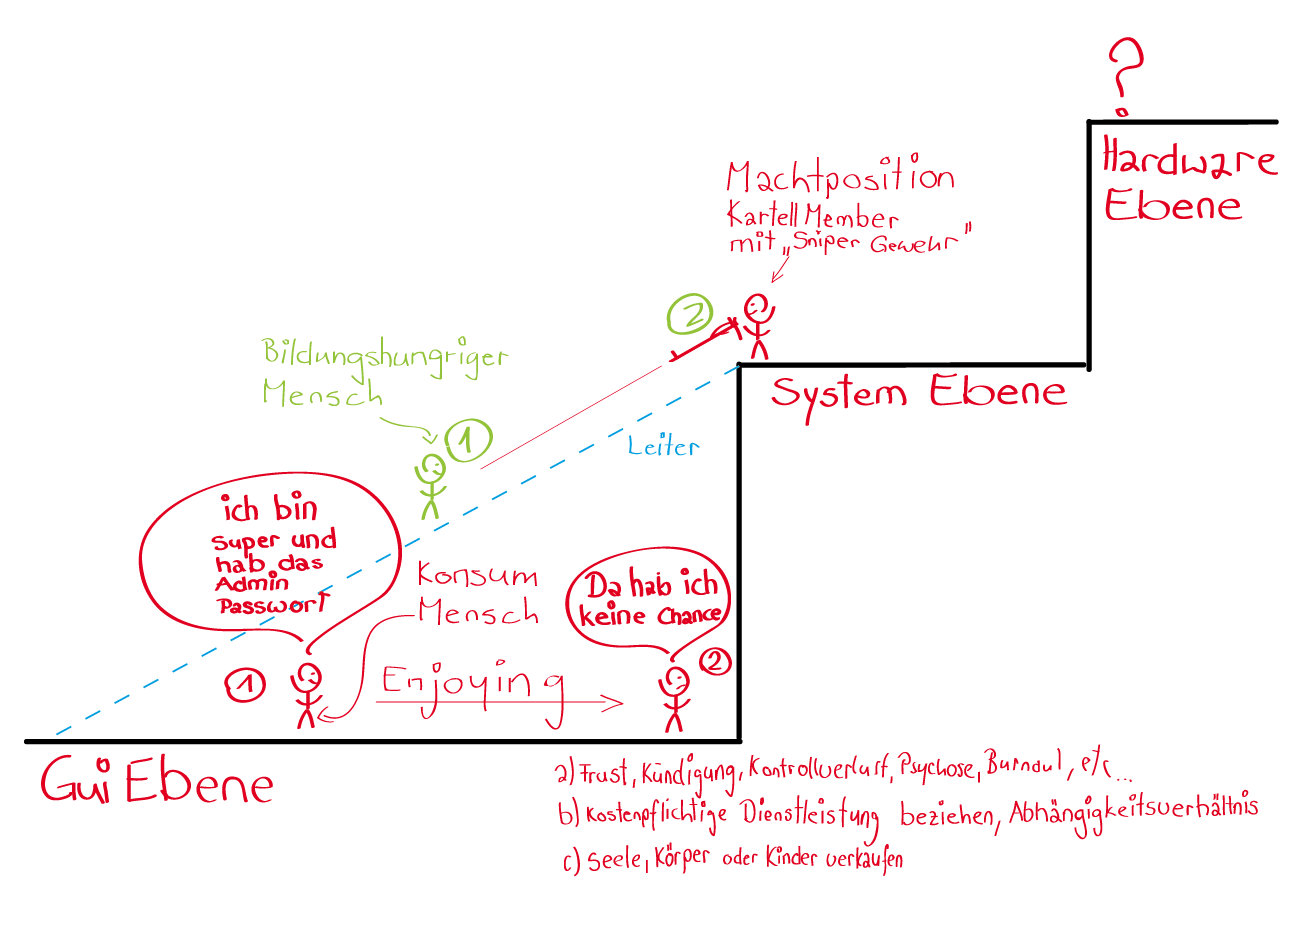 ?
Hardware
Ebene
Machtposition
Kartell Member
mit „Sniper Gewehr"
2
System Ebene
Bildungshungriger
Mensch
1
Leiter
ich bin
Super und
hab das
Admin
Passwort
Konsum
Mensch
Da hab ich
keine Chance
1
Enjoying
2
Gui Ebene
a) Frust, Kündigung, Kontrollverlust, Psychose, Burnout, etc...
b) Kostenpflichtige Dienstleistung beziehen, Abhängigkeitsverhältnis
c) Seele, Körper oder Kinder verkaufen